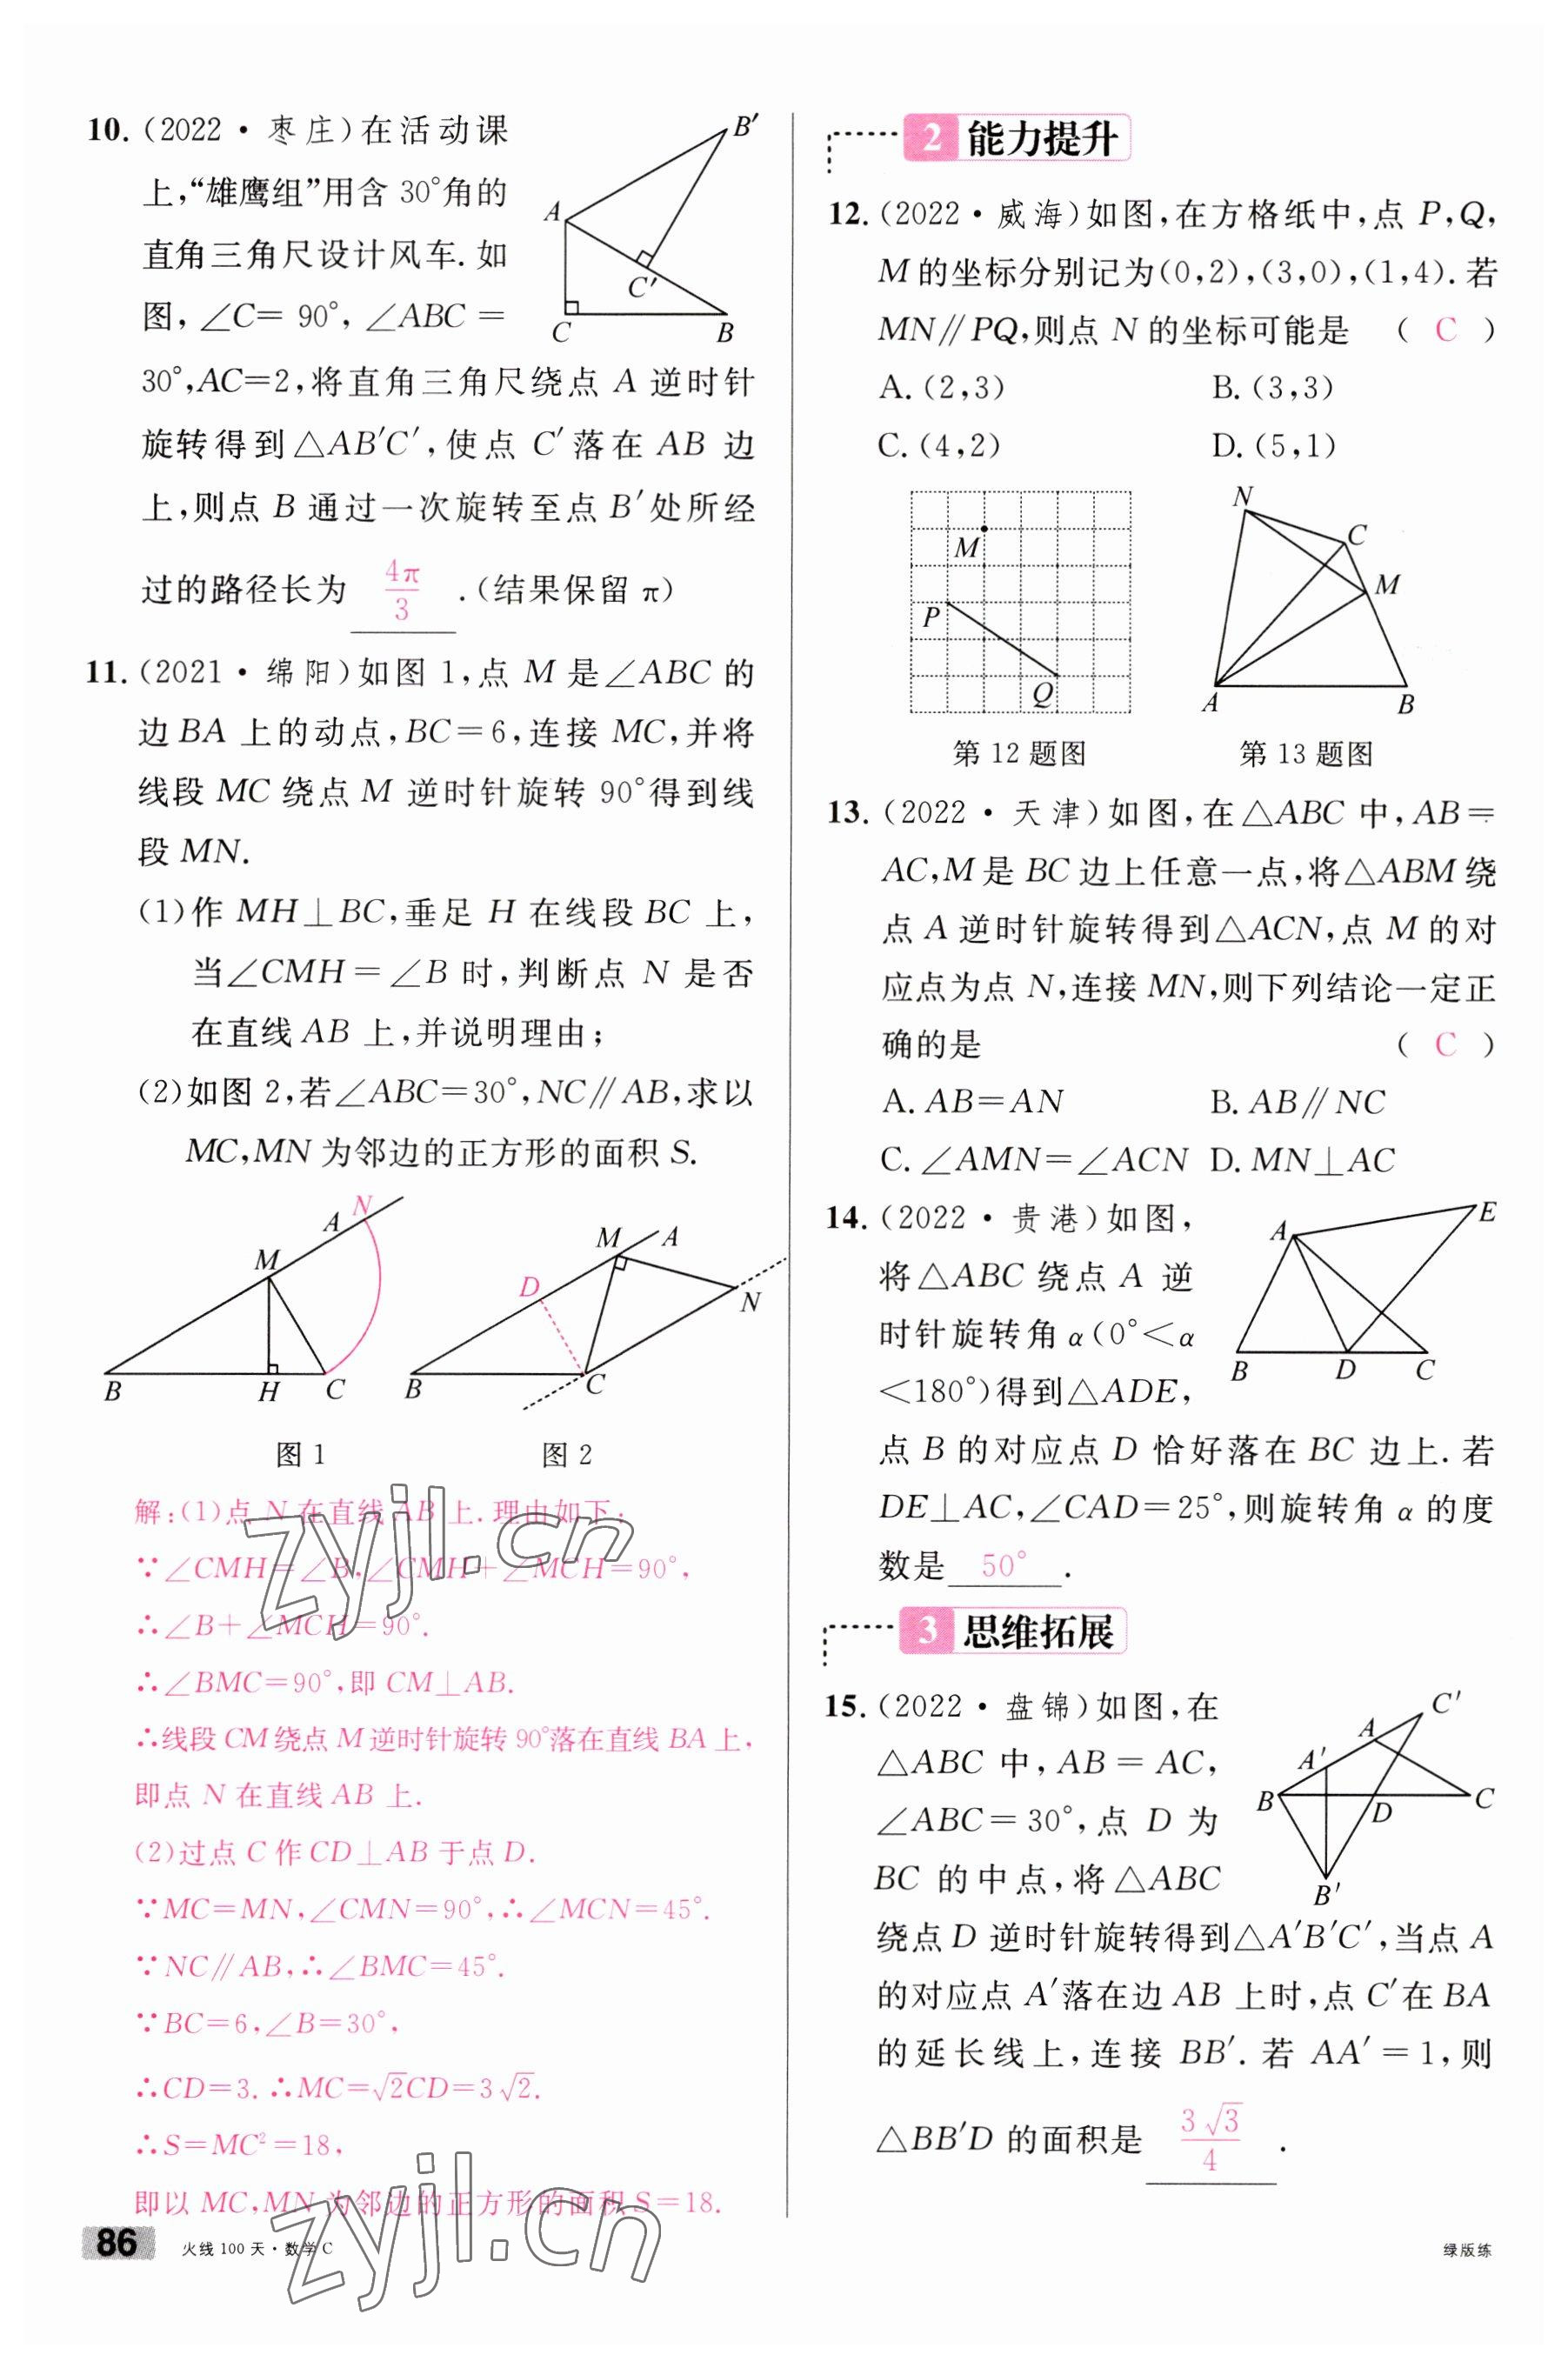 10.(2022·枣庄)在活动课
上,“雄鹰组”用含 30°角的
直角三角尺设计风车. 如
图,∠C= 90°,∠ABC =
30°,AC=2,将直角三角尺绕点 A 逆时针
旋转得到△AB′C′,使点 C′落在 AB 边
上,则点 B 通过一次旋转至点 B′处所经
过的路径长为 4π/3 .(结果保留 π)
B′
A
C′
C
B
11.(2021·绵阳)如图 1,点 M 是∠ABC 的
边 BA 上的动点,BC=6,连接 MC,并将
线段 MC 绕点 M 逆时针旋转 90°得到线
段 MN.
(1)作 MH⊥BC,垂足 H 在线段 BC 上,
当∠CMH=∠B 时,判断点 N 是否
在直线 AB 上,并说明理由;
(2)如图 2,若∠ABC=30°,NC∥AB,求以
MC,MN 为邻边的正方形的面积 S.
A N
M
B H C
图 1
M A
D
N
B C
图 2
解:(1)点 N 在直线 AB 上.理由如下:
∵∠CMH=∠B,∠CMH+∠MCH=90°,
∴∠B+∠MCH=90°.
∴∠BMC=90°,即 CM⊥AB.
∴线段 CM 绕点 M 逆时针旋转 90°落在直线 BA 上,
即点 N 在直线 AB 上.
(2)过点 C 作 CD⊥AB 于点 D.
∵MC=MN,∠CMN=90°,∴∠MCN=45°.
∵NC∥AB,∴∠BMC=45°.
∵BC=6,∠B=30°,
∴CD=3. ∴MC=√2CD=3√2.
∴S=MC²=18,
即以 MC,MN 为邻边的正方形的面积 S=18.
zyjl.cn
zyjl.cn
86 火线 100 天·数学 C
2 能力提升
12.(2022·威海)如图,在方格纸中,点 P,Q,
M 的坐标分别记为(0,2),(3,0),(1,4).若
MN∥PQ,则点 N 的坐标可能是 ( C )
A.(2,3) B.(3,3)
C.(4,2) D.(5,1)
M
P
Q
第 12 题图
N
C
M
A B
第 13 题图
13.(2022·天津)如图,在△ABC 中,AB=
AC,M 是 BC 边上任意一点,将△ABM 绕
点 A 逆时针旋转得到△ACN,点 M 的对
应点为点 N,连接 MN,则下列结论一定正
确的是 ( C )
A. AB=AN B. AB∥NC
C. ∠AMN=∠ACN D. MN⊥AC
14.(2022·贵港)如图,
将△ABC 绕点 A 逆
时针旋转角 α(0°<α
<180°)得到△ADE,
点 B 的对应点 D 恰好落在 BC 边上. 若
DE⊥AC,∠CAD=25°,则旋转角 α 的度
数是 50° .
A
E
B D C
3 思维拓展
15.(2022·盘锦)如图,在
△ABC 中,AB = AC,
∠ABC=30°,点 D 为
BC 的中点,将△ABC
绕点 D 逆时针旋转得到△A′B′C′,当点 A
的对应点 A′落在边 AB 上时,点 C′在 BA
的延长线上,连接 BB′. 若 AA′=1,则
△BB′D 的面积是 3√3/4 .
C′
A
A′
B
D
C
B′
绿版练